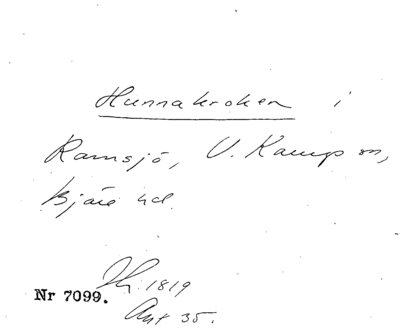 Hunnakroken i
Ramsjö, V. Karup sn,
Bjäre hd.
Nr 7099.
1819
Akt 35.